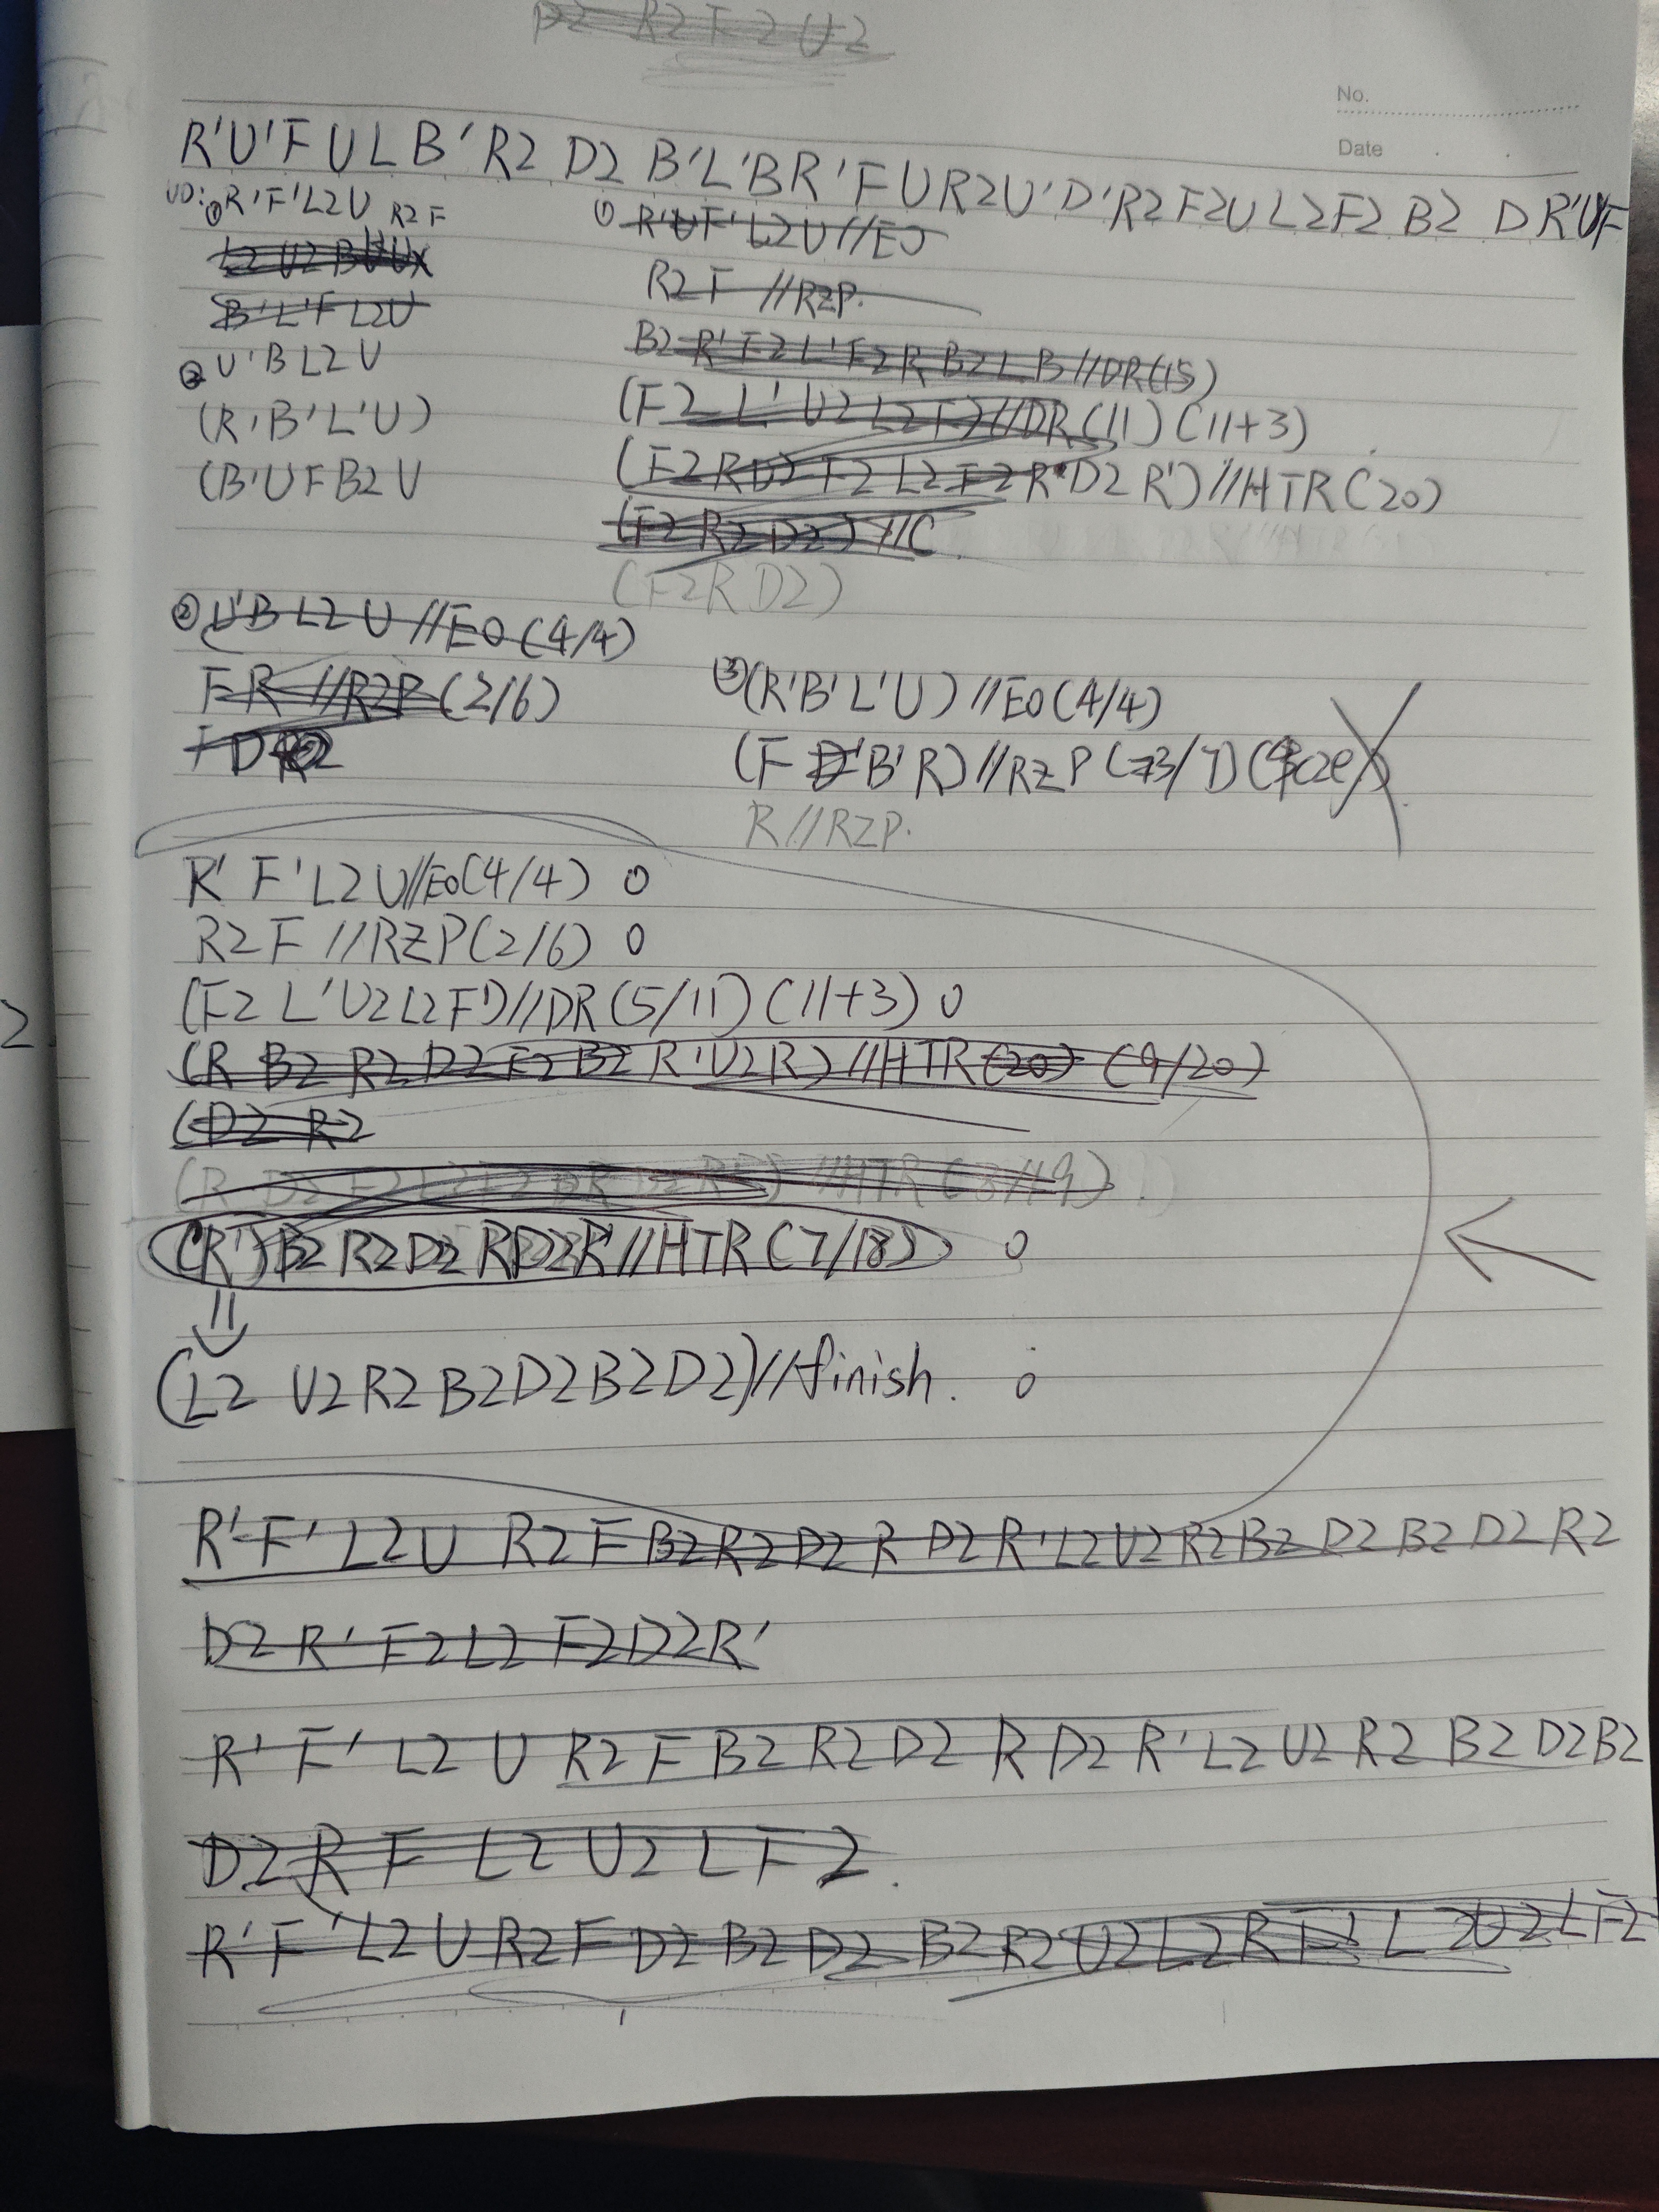 D2 R2 F2 U2
No.
Date
R'U'F U L B' R2 D2 B'L'BR'F U R2U'D'R2F2U L2F2 B2 D R'U'F
UD: ① R'F'L2U R2F
L2 U2 B
B'L'F L2U
② U'B L2 U
(R'B'L'U)
(B'UFB2U
① R'F'L2U//EO
R2 F //RZP.
B2 R'F2L'F2R B2 L B//DR(15)
(F2 L' U2 L2 F2)//DR(11)(11+3)
(F2 R D2 F2 L2 F2 R' D2 R')//HTR(20)
(F2 R2 D2)//C
(F2 R D2)
② U'B L2 U //EO(4/4)
F R //RZP(2/6)
F D R2
③(R'B'L'U)//EO(4/4)
(F B'R)//RZP(3/7)
R//RZP.
R' F' L2 U//EO(4/4) O
R2 F //RZP(2/6) O
(F2 L'U2L2F')//DR(5/11)(11+3) O
(R B2 R2 D2 F2 B2 R'U2R)//HTR(20)(9/20)
(D2 R2
//HTR(8/19)
(R')B2 R2 D2 R D2 R'//HTR(7/18) O
(L2 U2 R2 B2 D2 B2 D2)//finish. O
R'F'L2U R2 F B2 R2 D2 R D2 R'L2U2R2B2 D2 B2 D2 R2
D2 R' F2 L2 F2 D2 R'
R' F' L2 U R2 F B2 R2 D2 R D2 R'L2 U2 R2 B2 D2B2
D2 R F L2 U2 L F2.
R'F'L2 U R2 F D2 B2 D2 B2 R2 U2 L2 R F L2U2LF2